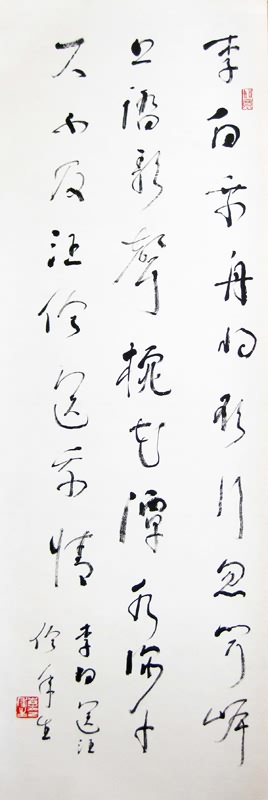 李白乘舟將欲行忽聞岸
上踏歌聲桃花潭水深千
尺不及汪倫送我情
李白送汪
倫